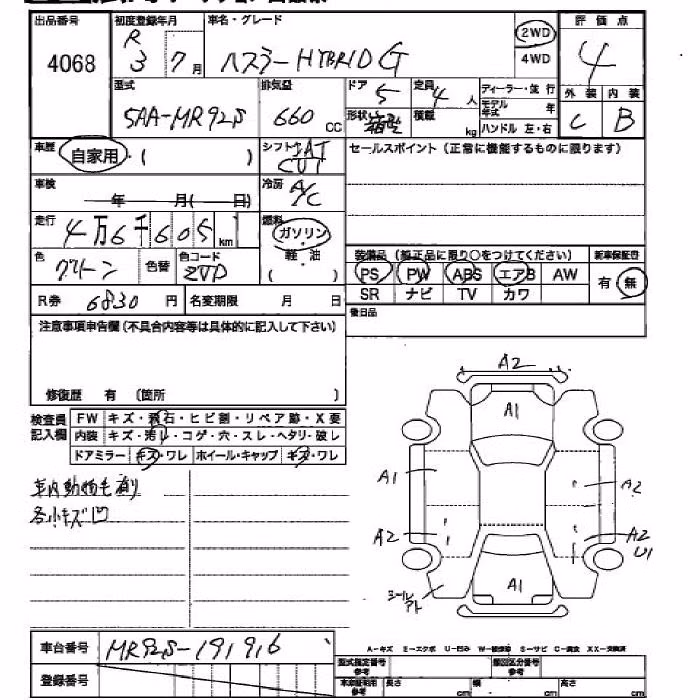 出品番号 初度登録年月 車名・グレード 評価点
4068 R 3 7月 ハスラー HYBRID G 2WD 4WD 4
型式 排気量 ドア 5 定員 4人 ディーラー・並行 外装 内装
5AA-MR92S 660 CC 形状 箱型 積載 kg モデル年式 年 ハンドル 左・右 C B
車歴 自家用・( ) シフト FAT CVT セールスポイント(正常に機能するものに限ります)
車検 年 月( 日) 冷房 A/C
走行 4万6千605km 燃料 ガソリン・軽・油 ( )
色 グリーン 色替 色コード ZVD
装備品(純正品に限り○をつけてください) 新車保証書
PS PW ABS エアB AW 有・無
SR ナビ TV カワ
R券 6830円 名変期限 月 日 後日品
注意事項申告欄(不具合内容等は具体的に記入して下さい)
修復歴 有 (箇所 )
検査員記入欄
FW キズ・飛石・ヒビ割・リペア跡・X要
内装 キズ・汚れ・コゲ・穴・スレ・ヘタリ・破レ
ドアミラー キズ・ワレ ホイール・キャップ キズ・ワレ
車内動物毛有り
各小キズ凹
A2
A1
A1
A2
A2
A2
U1
A1
シールアト
車台番号 MR92S-191916
登録番号
A-キズ E-エクボ U-凹み W-補修跡 S-サビ C-腐食 XX-交換済
型式指定番号 参考 類別区分番号 参考
車庫証明用 参考 長さ cm 幅 cm 高さ cm